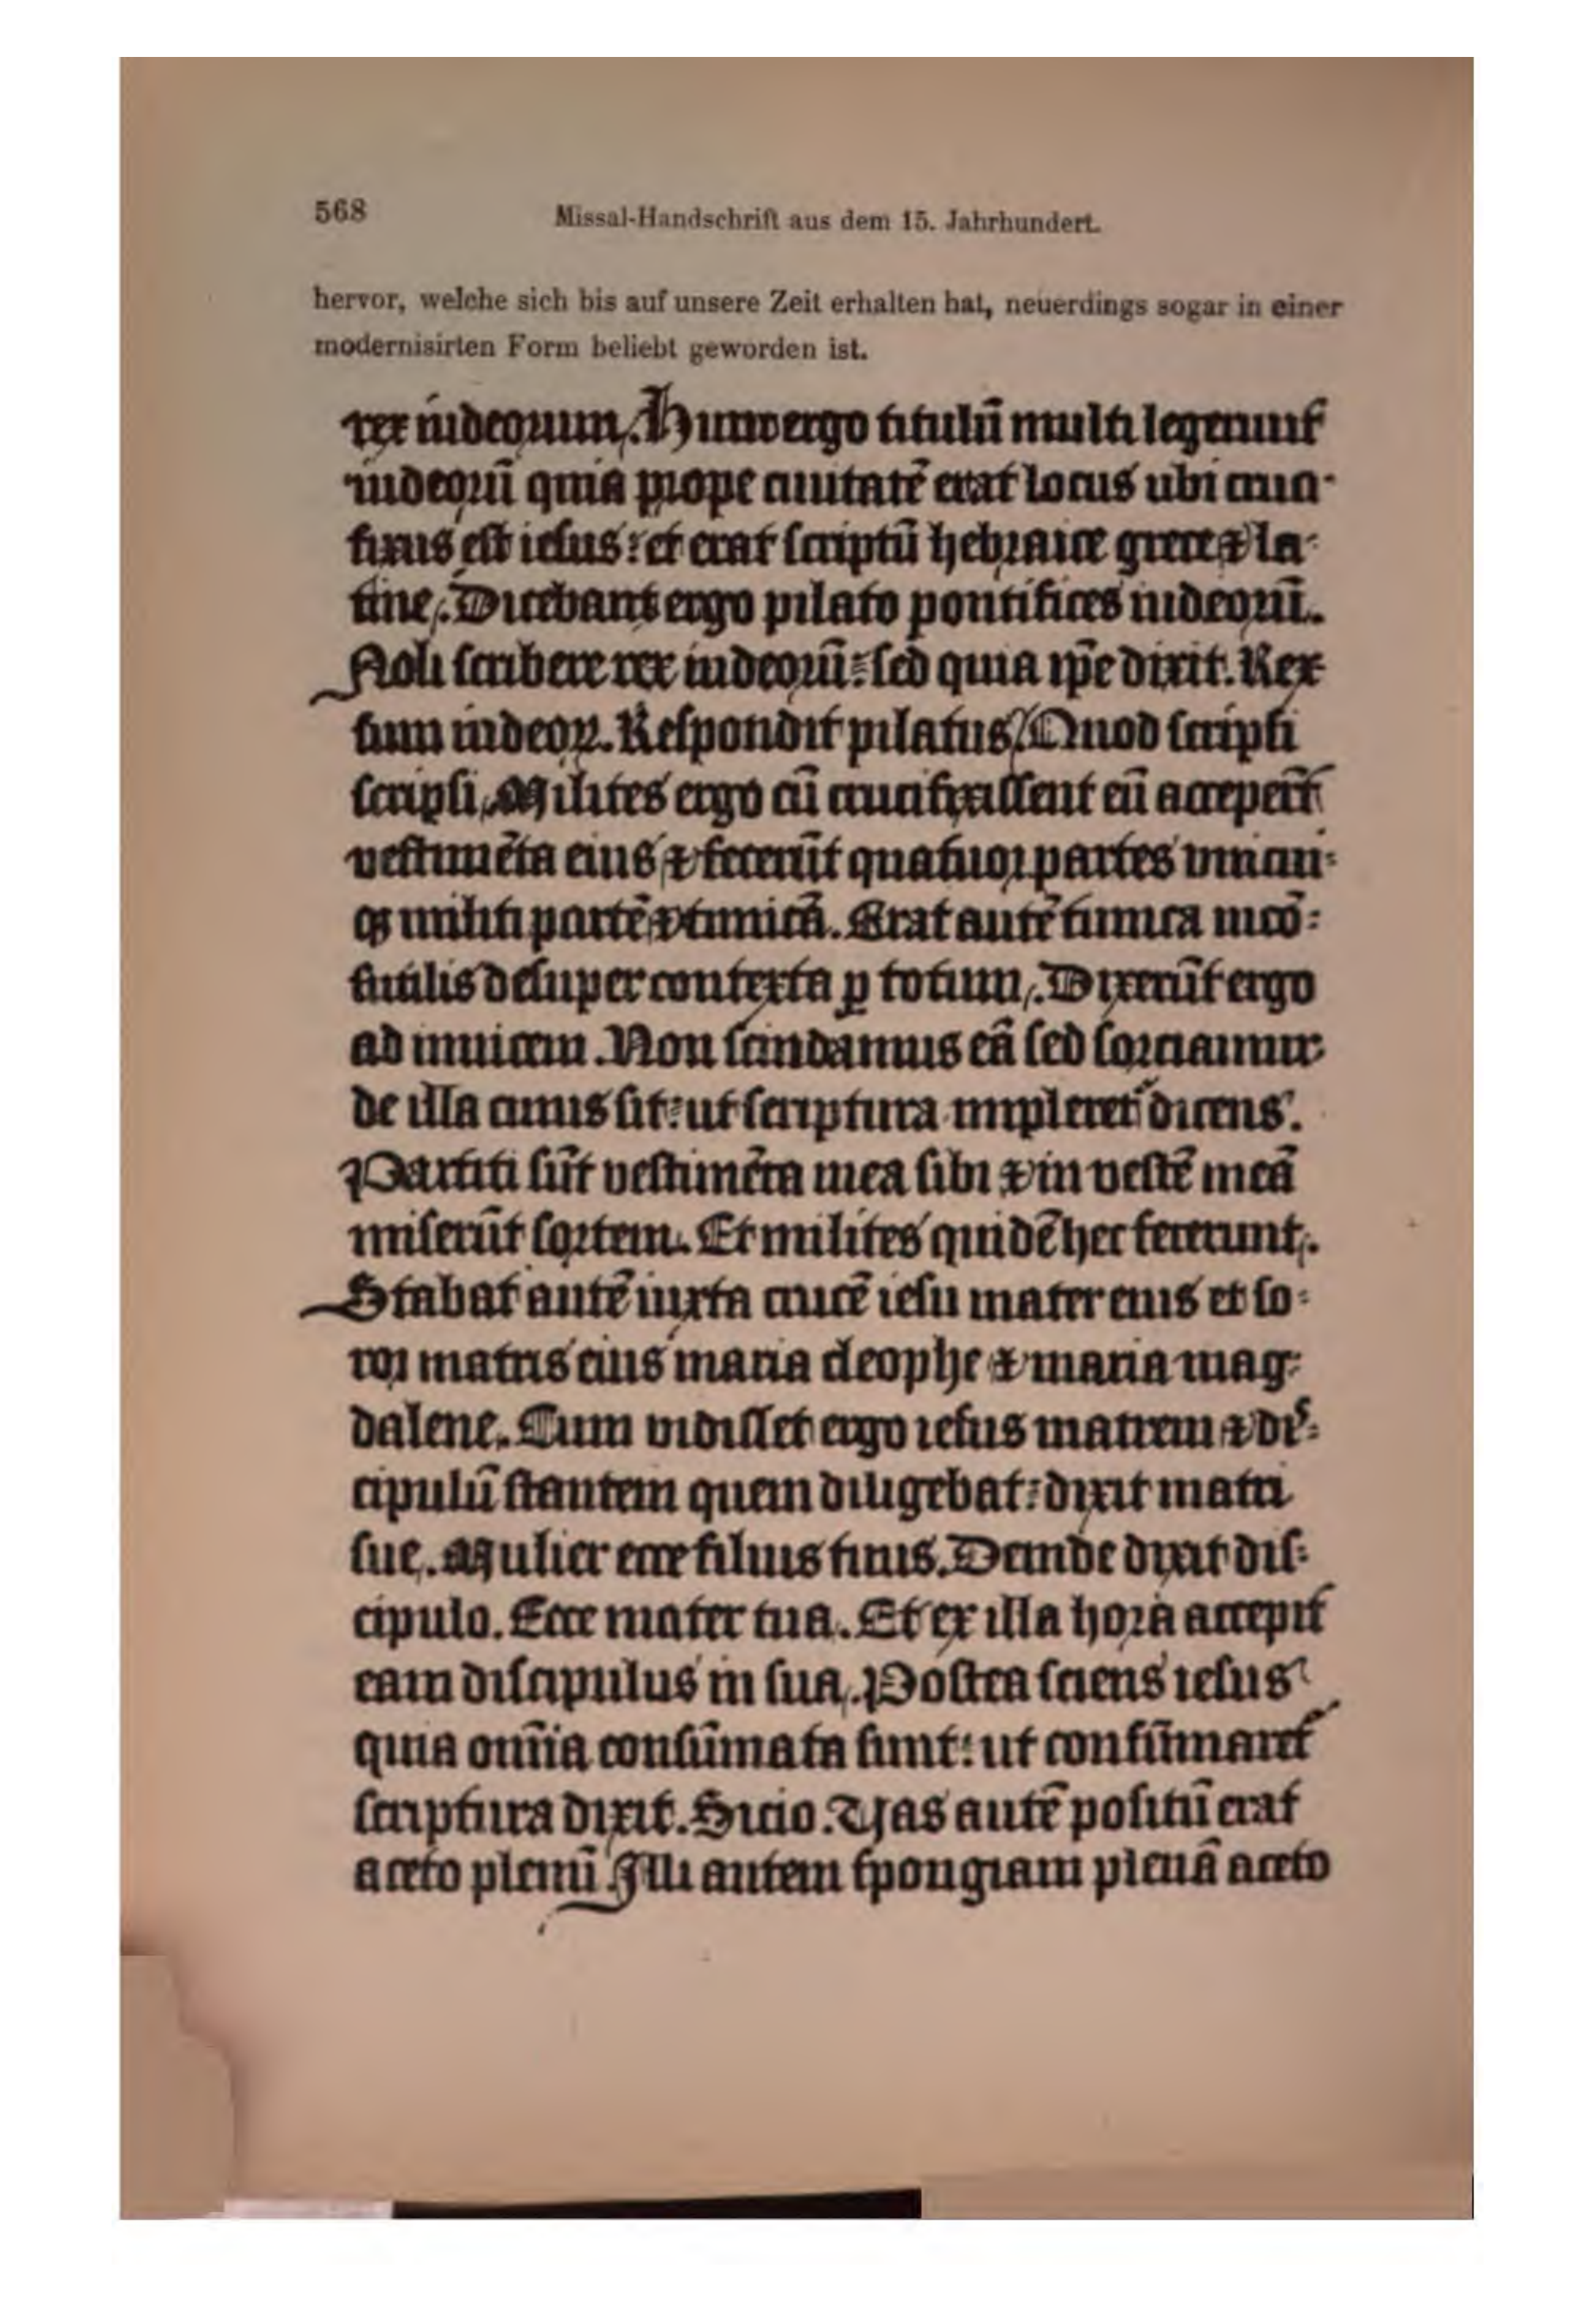 568
Missal-Handschrift aus dem 15. Jahrhundert.
hervor, welche sich bis auf unsere Zeit erhalten hat, neuerdings sogar in einer
modernisirten Form beliebt geworden ist.
rex iudeorum. Hunc ergo titulū multi legerunt
iudeorū quia prope ciuitatē erat locus ubi cruci-
fixus est iesus: et erat scriptū hebraice grece ⁊ la-
tine. Dicebant ergo pilato pontifices iudeorū.
Noli scribere rex iudeorū: sed quia ip̄e dixit. Rex
sum iudeoꝝ. Respondit pilatus. Quod scripsi
scripsi. Milites ergo cū crucifixissent eū acceper̄t
vestimēta eius ⁊ fecerūt quatuor partes vnicui-
qꝫ militi partē ⁊ tunicā. Erat autē tunica incō-
sutilis desuper contexta ꝑ totum. Dixerūt ergo
ad inuicem. Non scindamus eā sed sorciamur
de illa cuius sit: ut scriptura impleret᷑ dicens.
Partiti sūt vestimēta mea sibi ⁊ in vestē meā
miserūt sortem. Et milites quidē hec fecerunt.
Stabat autē iuxta crucē iesu mater eius et so-
ror matris eius maria cleophe ⁊ maria mag-
dalene. Cum vidisset ergo iesus matrem ⁊ dis-
cipulū stantem quem diligebat: dixit matri
sue. Mulier ecce filius tuus. Deinde dixit dis-
cipulo. Ecce mater tua. Et ex illa hora accepit
eam discipulus in sua. Postea sciens iesus
quia om̄ia consūmata sunt: ut consūmaret᷑
scriptura dixit. Sicio. Vas autē positū erat
aceto plenū. Illi autem spongiam plenā aceto